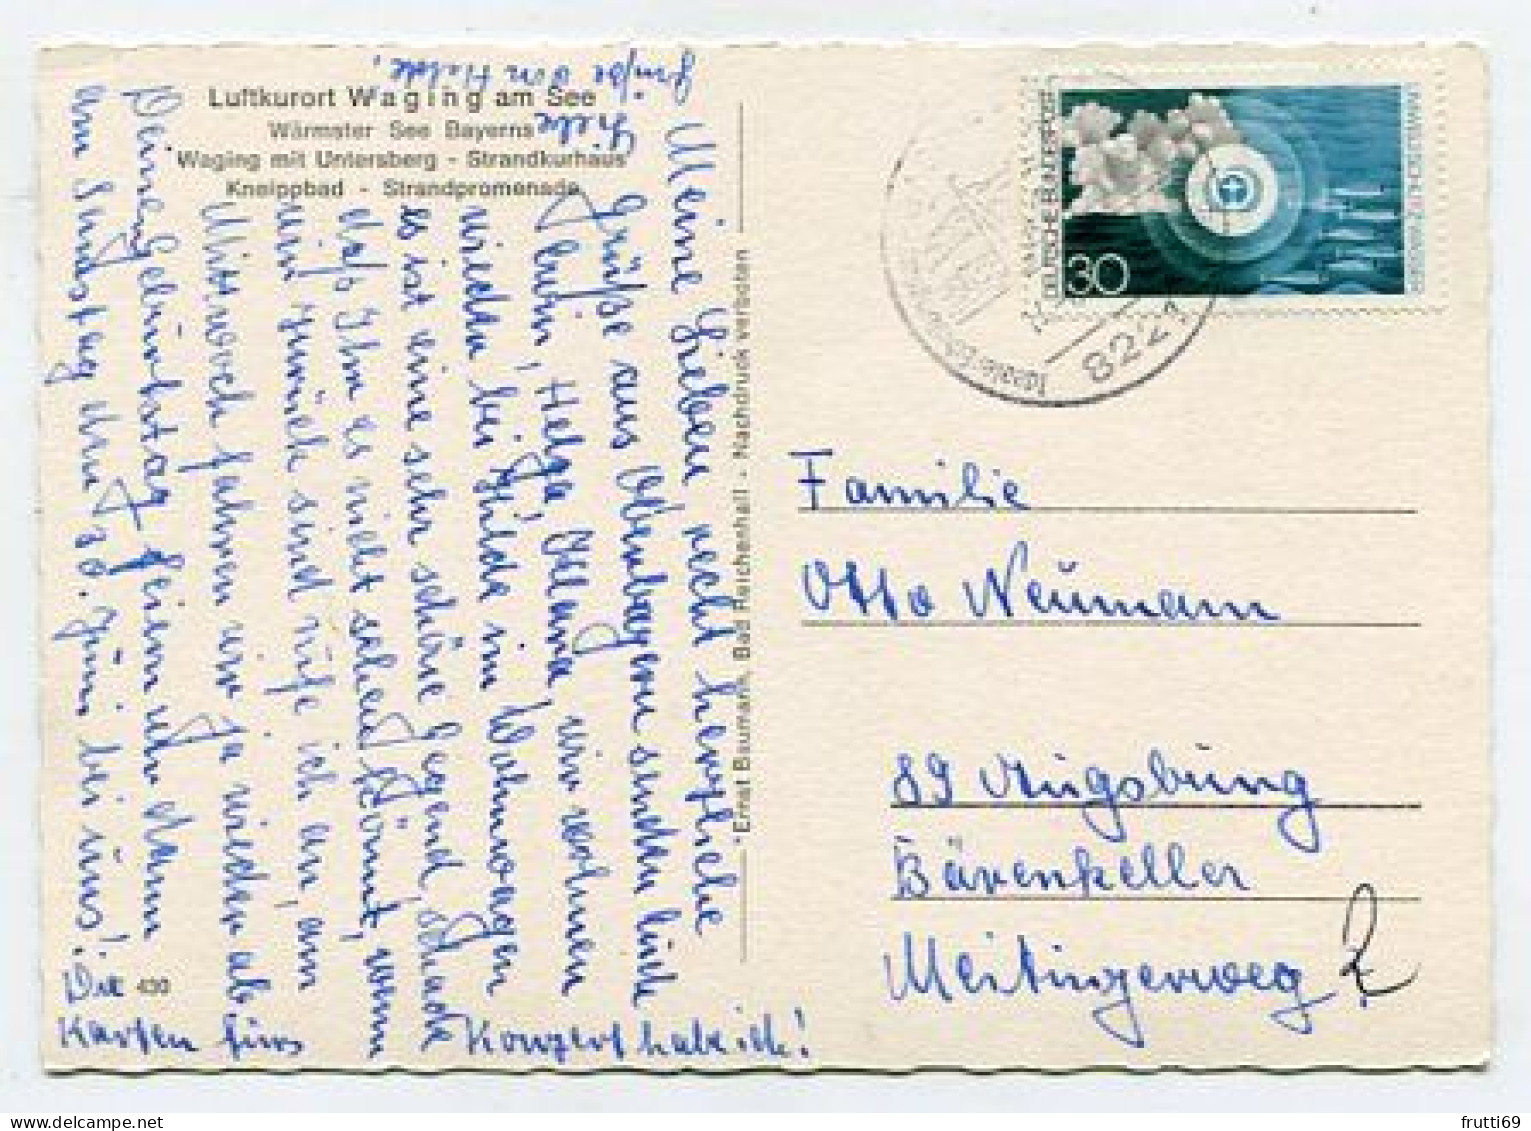 Luftkurort Waging am See
Wärmster See Bayerns
Waging mit Untersberg - Strandkurhaus
Kneippbad - Strandpromenade
Meine Lieben, recht herzliche
Grüße aus Oberbayern senden Euch
Erwin, Helga, Oma, wir wohnen
wieder bei Hilde im Wohnwagen
es ist eine sehr schöne Gegend, schade
daß Ihr es nicht sehen könnt, wenn
wir zurück sind rufe ich an, am
Mittwoch fahren wir ja wieder ab.
Deinen Geburtstag feiern wir dann
am Samstag den 30. Juni bei uns!
Die
Karten fürs Konzert habe ich!
Liebe
Grüße von Hilde,
430
Ernst Baumann, Bad Reichenhall - Nachdruck verboten
DEUTSCHE BUNDESPOST
30
UMWELTSCHUTZ: WASSER
8221
Familie
Otto Neumann
89 Augsburg
Bärenkeller
Meitingerweg 2
frutti69